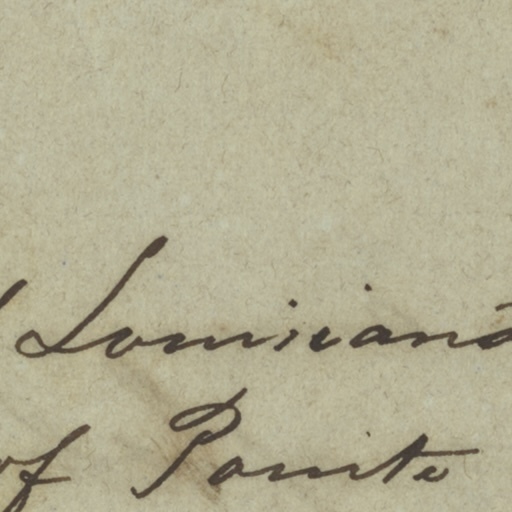 Louisiana
of Pointe